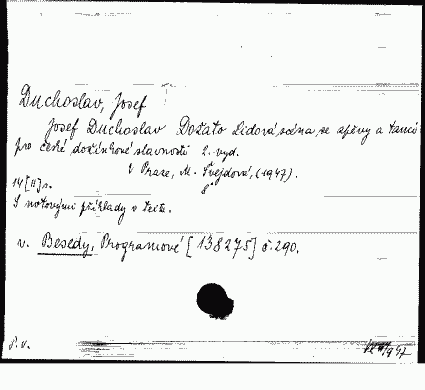 Duchoslav, Josef
Josef Duchoslav Dožato Lidová scéna se zpěvy a tanci
pro české dožínkové slavnosti 2. vyd.
V Praze, M. Švejdová, (1947).
14 [II] s. 8°
S notovými příklady v textu.
v. Besedy, Programové [138275] č. 290.
P. V. /947